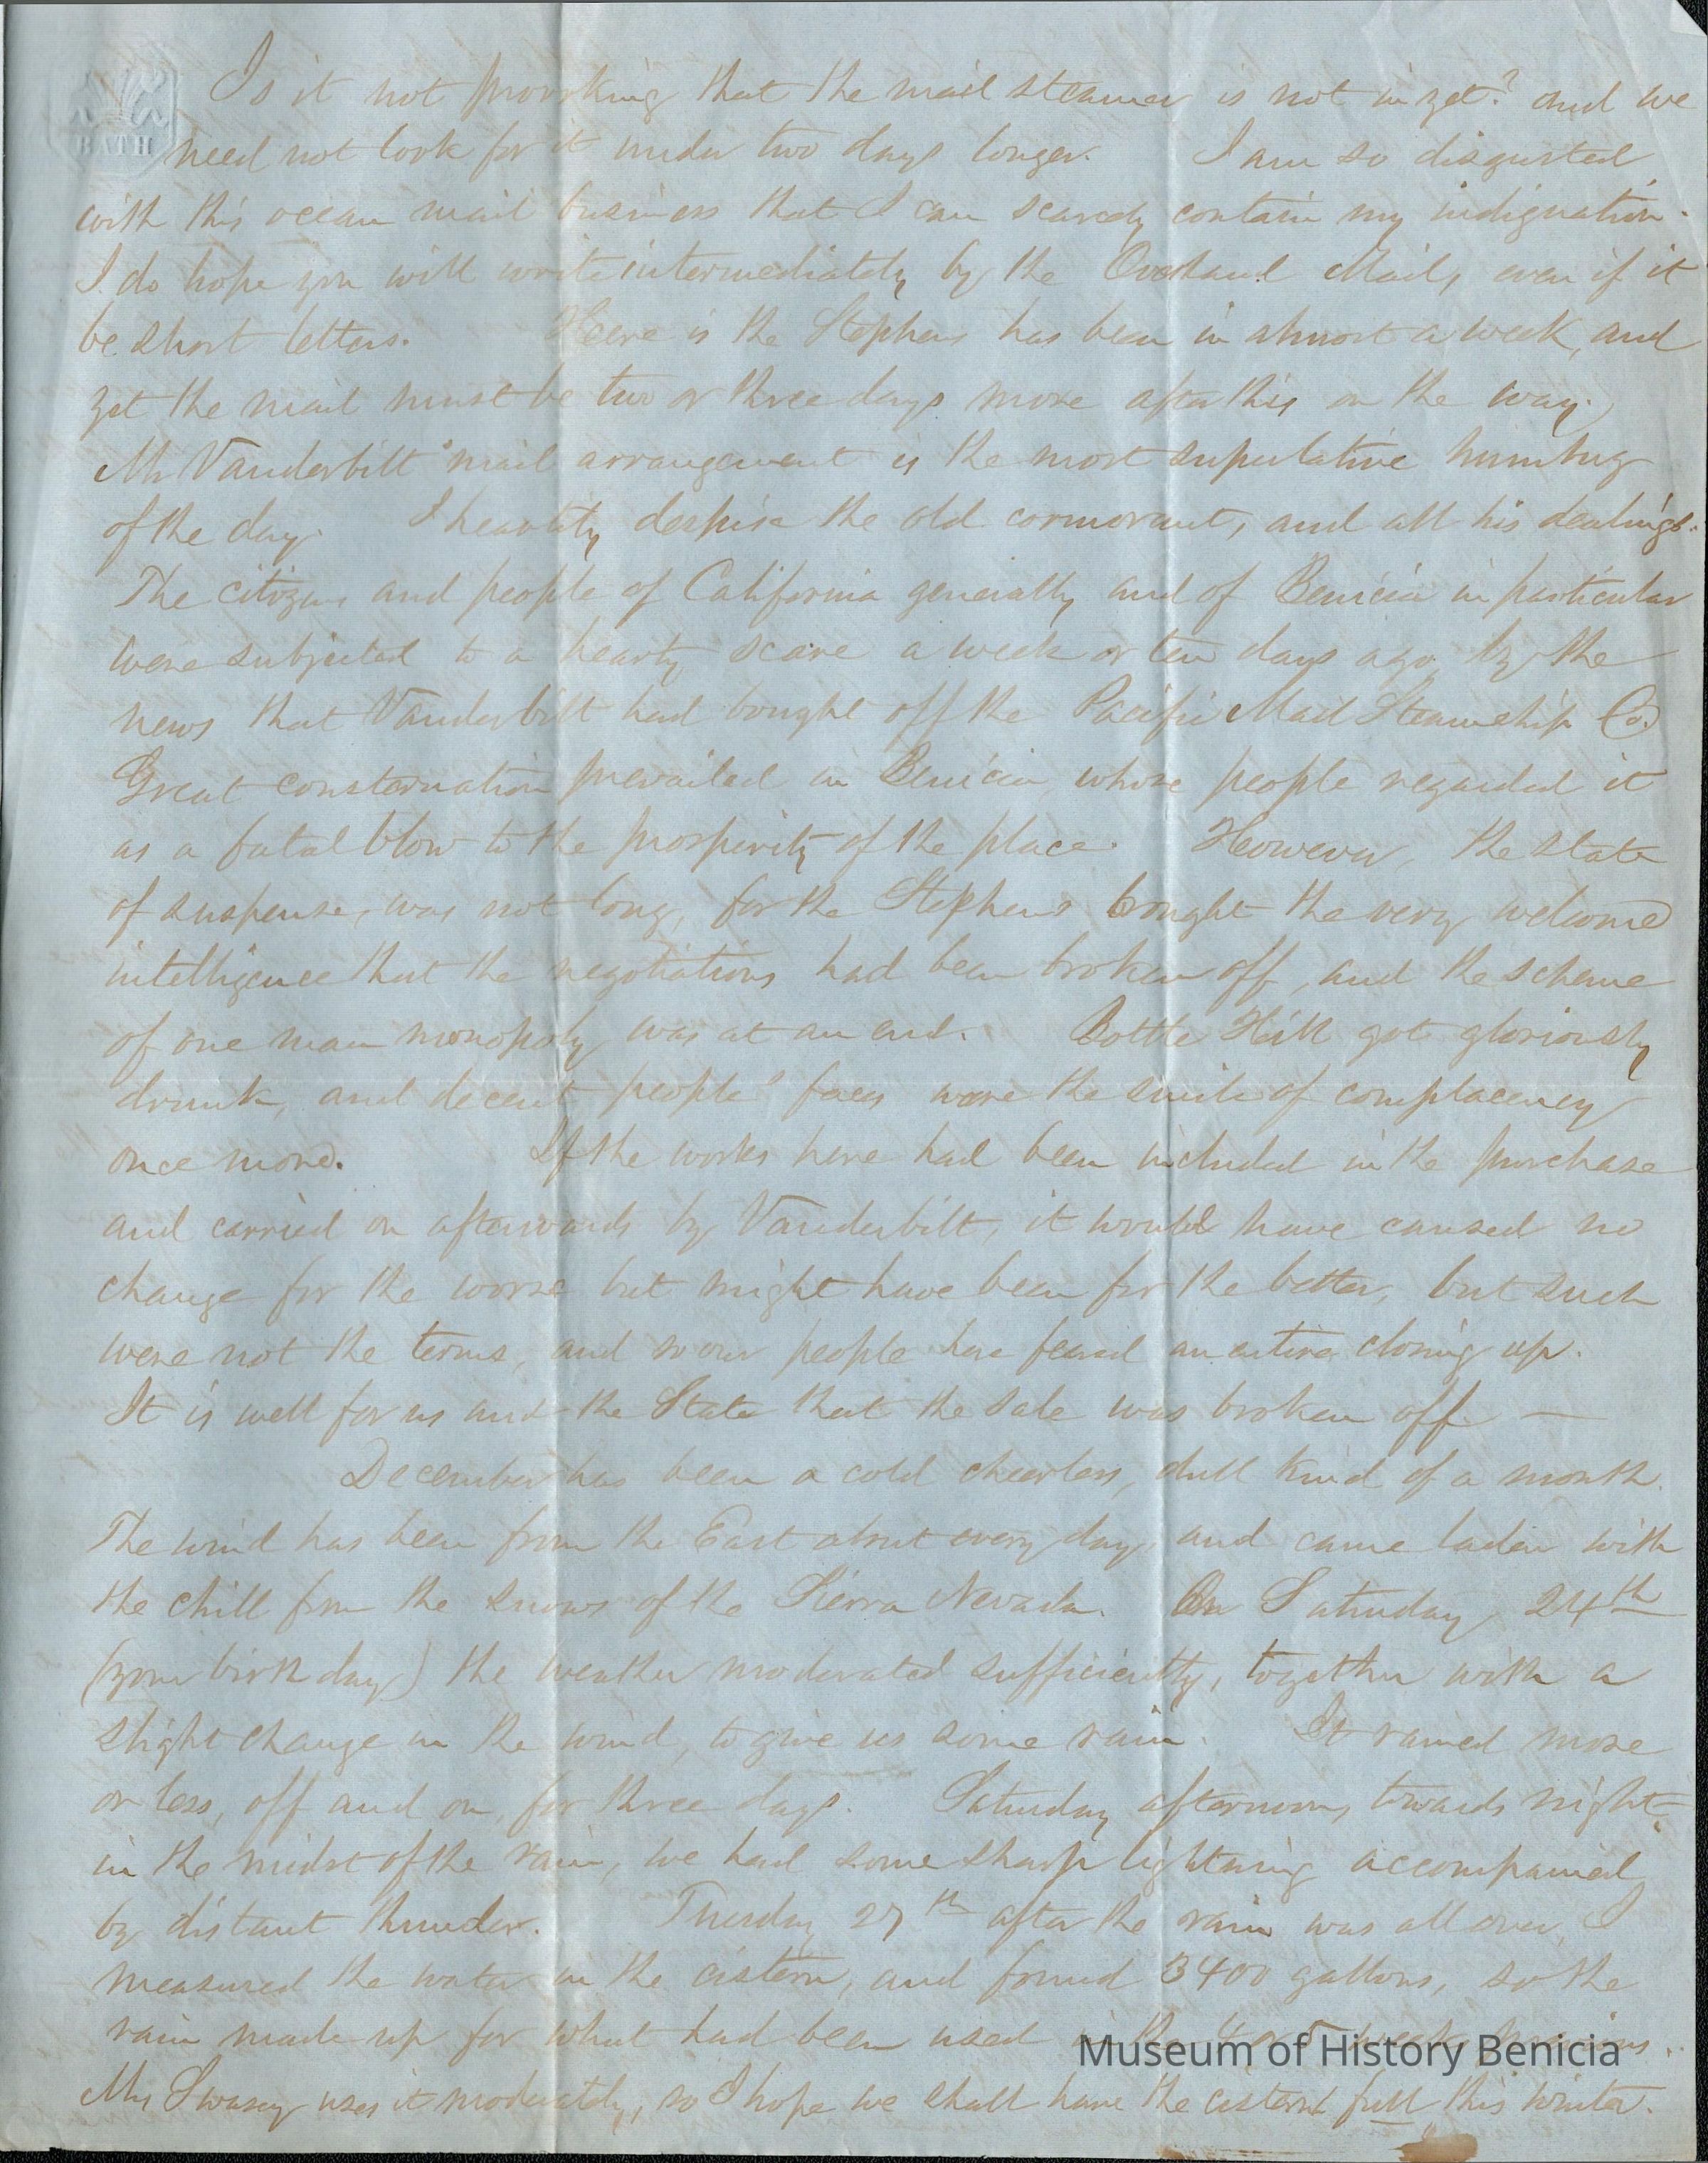 Is it not provoking that the mail steamer is not in yet? and we
need not look for it under two days longer. I am so disgusted
with this ocean mail business that I can scarcely contain my indignation.
I do hope you will write intermediately by the Overland Mail, even if it
be short letters. Here is the Stephens has been in almost a week, and
yet the mail must be two or three days more after this on the way.
Mr Vanderbilt's mail arrangement is the most superlative humbug
of the day. I heartily despise the old cormorant, and all his dealings.
The citizens and people of California generally and of Benicia in particular
were subjected to a hearty scare a week or ten days ago by the
news that Vanderbilt had bought off the Pacific Mail Steamship Co.
Great consternation prevailed in Benicia, whose people regarded it
as a fatal blow to the prosperity of the place. However, the state
of suspense, was not long, for the Stephens brought the very welcome
intelligence that the negotiations had been broken off, and the scheme
of one man monopoly was at an end. Bottle Hill got gloriously
drunk, and decent people's faces wore the smile of complacency
once more. If the works here had been included in the purchase
and carried on afterwards by Vanderbilt, it would have caused no
change for the worse but might have been for the better, but such
were not the terms, and so our people here feared an entire closing up.
It is well for us and the State that the sale was broken off —
December has been a cold cheerless, dull kind of a month.
The wind has been from the East about every day, and came laden with
the chill from the snows of the Sierra Nevada. On Saturday 24th
(your birth day) the weather moderated sufficiently, together with a
slight change in the wind, to give us some rain. It rained more
or less, off and on, for three days. Saturday afternoon, towards night,
in the midst of the rain, we had some sharp lightning accompanied
by distant thunder. Tuesday 27th after the rain was all over, I
measured the water in the cistern, and found 3400 gallons, so the
rain made up for what had been used in the 4 or 5 weeks previous.
Mrs Swasey uses it moderately, so I hope we shall have the cistern full this winter.
BATH
Museum of History Benicia